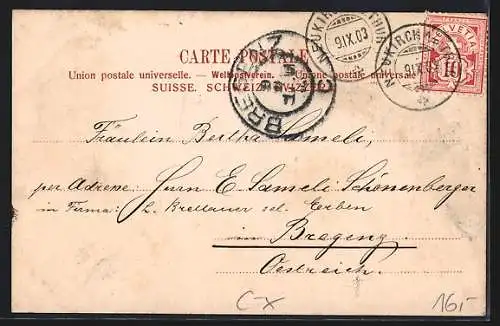 CARTE POSTALE
Union postale universelle. — Weltpostverein. — Unione postale universale
SUISSE. SCHWEIZ. SVIZZERA.
NEUKIRCH THUR
9.IX.03
NEUKIRCH
9.IX.03
HELVETIA
10
BRE
Fräulein Bertha Sameli,
per Adresse: Herrn E. Sameli-Schönenberger
in Firma: L. Brettauer sel. Erben
Bregenz
Oestreich.
CX
16,-